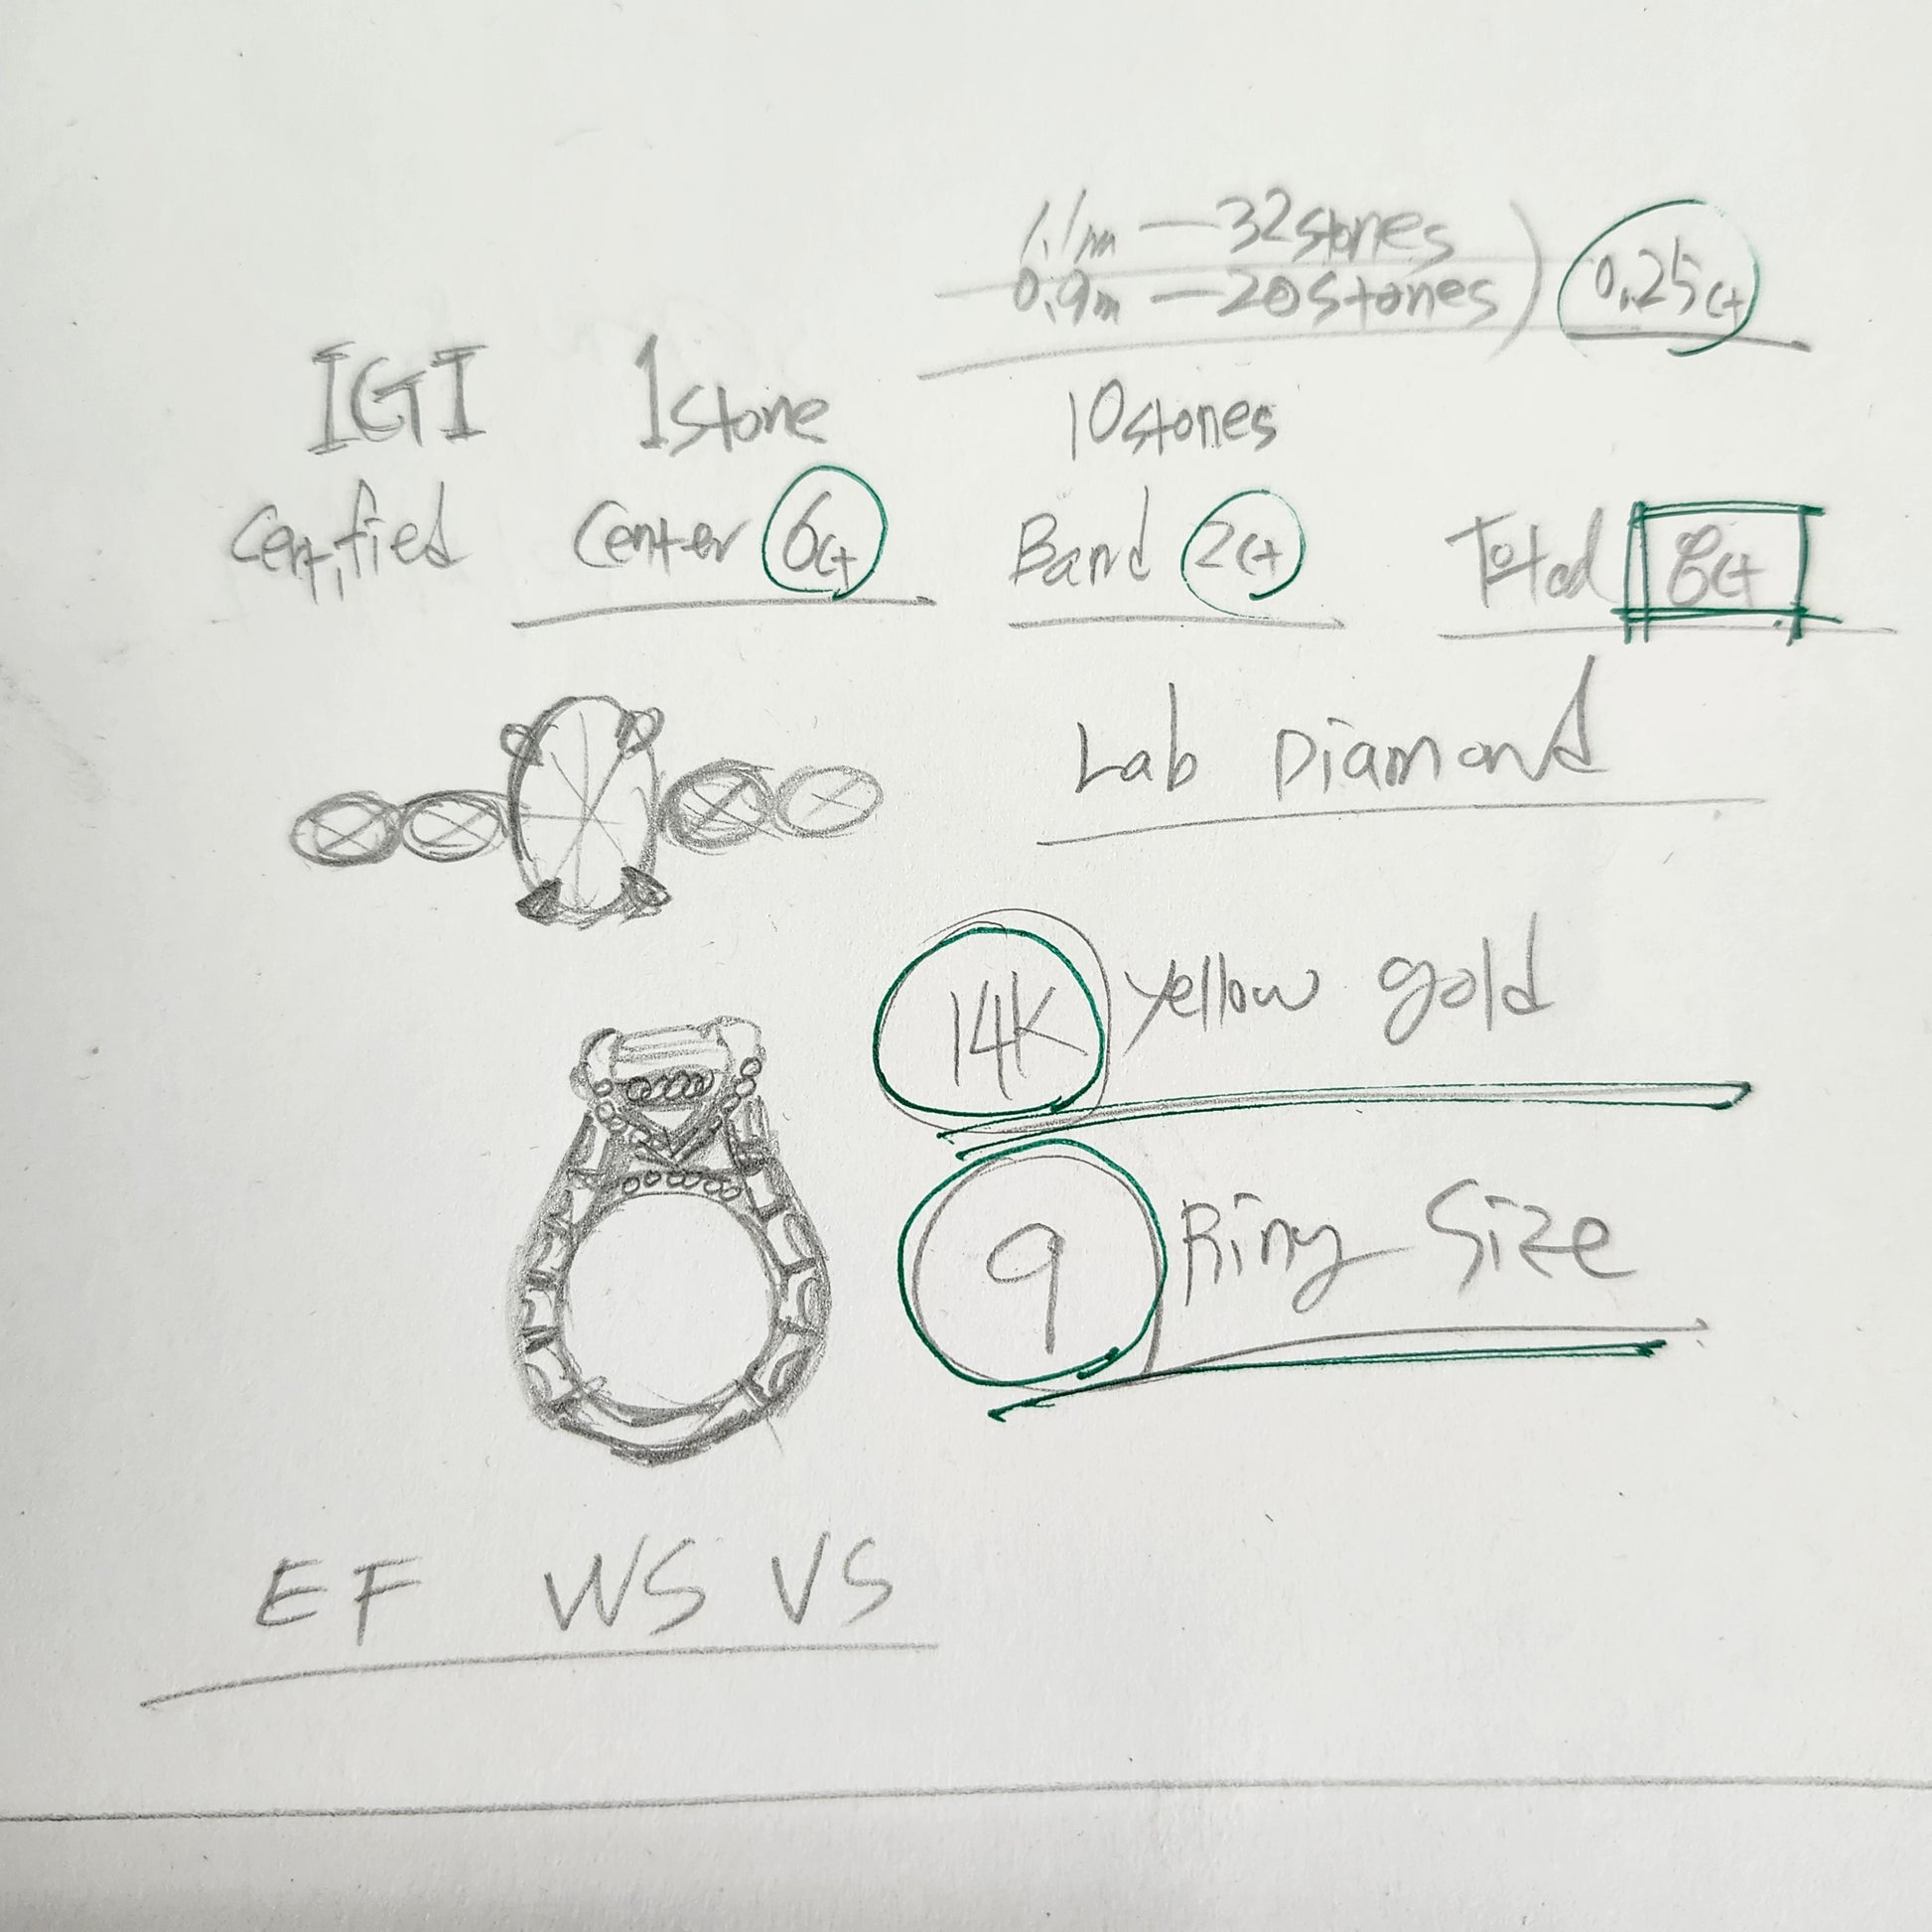 1.1m — 32stones
0.9m — 20stones ) 0.25ct
IGI 1stone 10stones
Certified Center 6ct Band 2ct Total 8ct
Lab Diamond
14K yellow gold
9 Ring Size
EF VVS VS